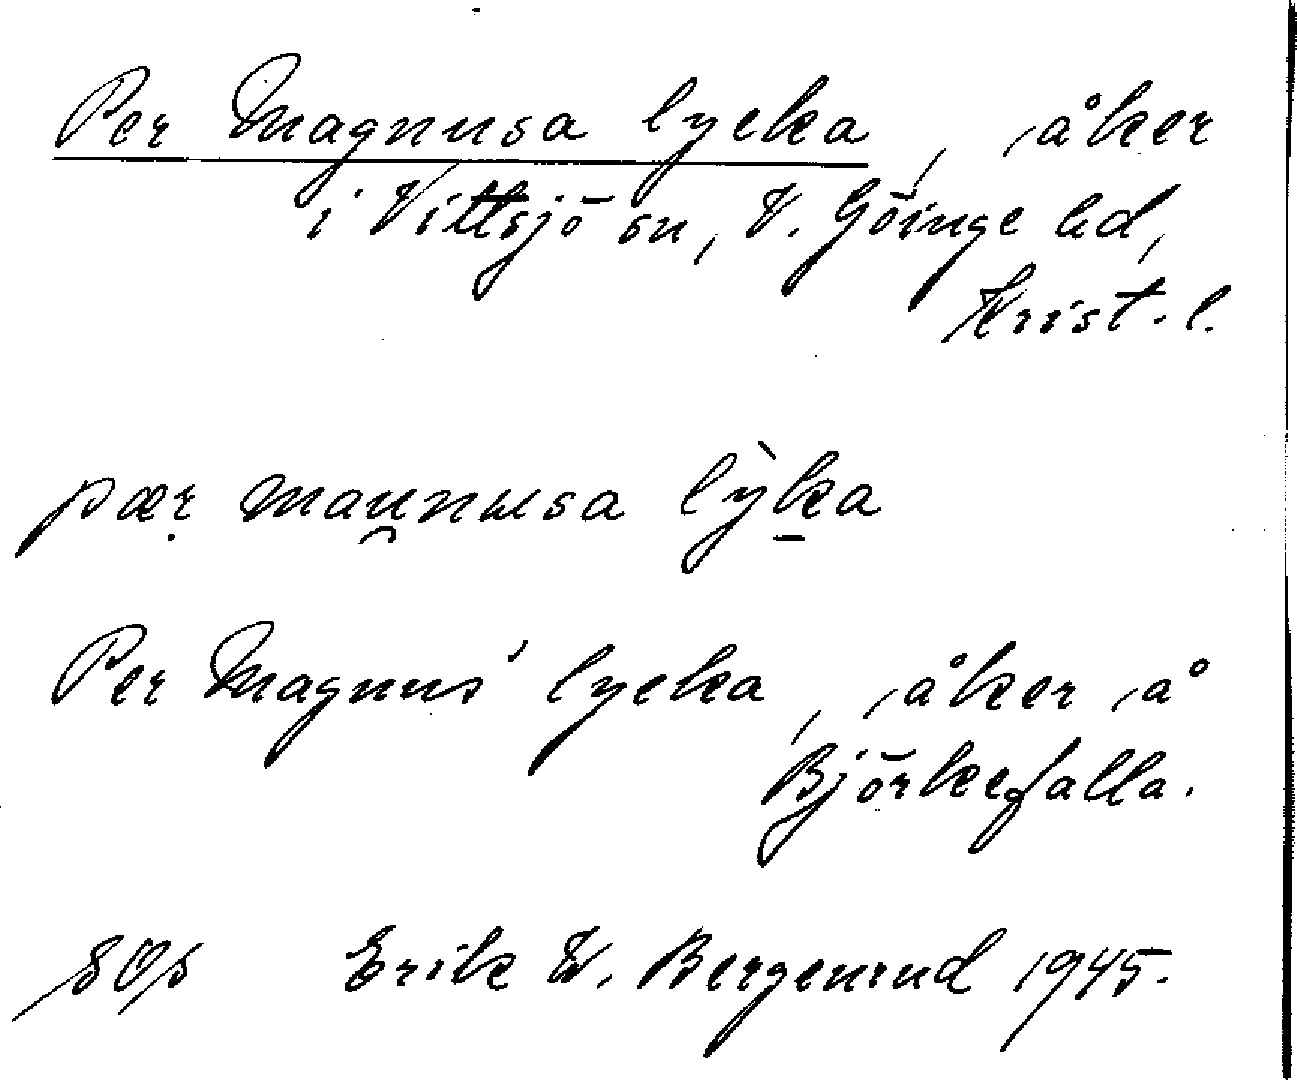 Per Magnusa lycka, åker
i Vittsjö sn, V. Göinge hd,
Krist. l.
pær maunusa lỳka
Per Magnus' lycka, åker å
Björkefalla.
Erik W. Bergenrud 1945.